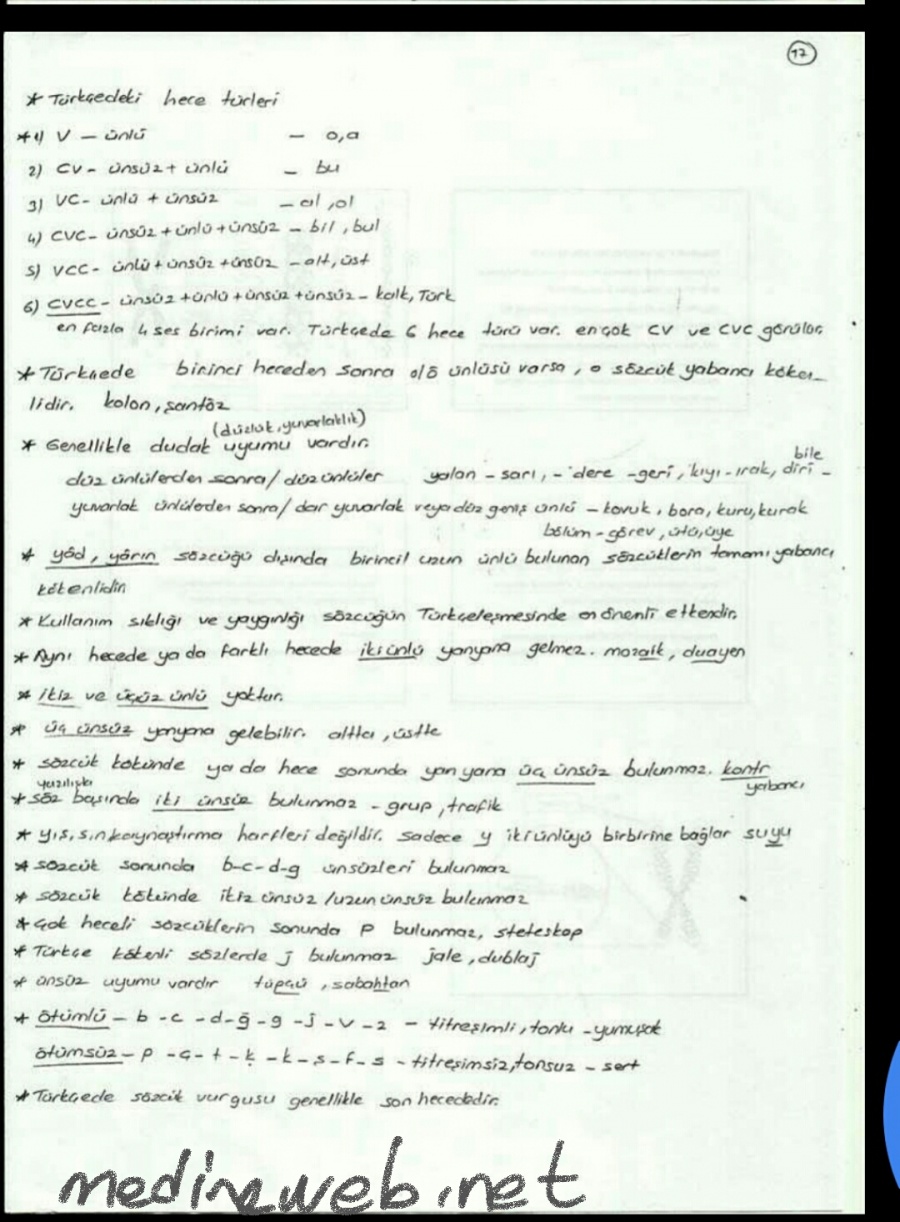 12
* Türkçedeki hece türleri
* 1) V – ünlü – o,a
2) CV – ünsüz + ünlü – bu
3) VC – ünlü + ünsüz – al, ol
4) CVC – ünsüz + ünlü + ünsüz – bil, bul
5) VCC – ünlü + ünsüz + ünsüz – alt, üst
6) CVCC – ünsüz + ünlü + ünsüz + ünsüz – kalk, Türk
en fazla 4 ses birimi var. Türkçede 6 hece türü var. en çok CV ve CVC görülür.
* Türkçede birinci heceden sonra o/ö ünlüsü varsa, o sözcük yabancı köken-
lidir. kolon, şantöz
(düzlük, yuvarlaklık)
* Genellikle dudak uyumu vardır.
bile
düz ünlülerden sonra / düz ünlüler yalan – sarı, – dere – geri, kıyı – ırak, diri –
yuvarlak ünlülerden sonra / dar yuvarlak veya düz geniş ünlü – kovuk, bora, kuru, kurak
bölüm – görev, ütü, üye
* yâd, yârın sözcüğü dışında birincil uzun ünlü bulunan sözcüklerin tamamı yabancı
kökenlidir.
* Kullanım sıklığı ve yaygınlığı sözcüğün Türkçeleşmesinde en önemli etkendir.
* Aynı hecede ya da farklı hecede iki ünlü yanyana gelmez. mozaik, duayen
* ikiz ve üçüz ünlü yoktur.
* üç ünsüz yanyana gelebilir. altta, üstte
* sözcük kökünde ya da hece sonunda yan yana üç ünsüz bulunmaz. kontr
yazılışta yabancı
* söz başında iki ünsüz bulunmaz – grup, trafik
* y, ş, s, n kaynaştırma harfleri değildir. sadece y iki ünlüyü birbirine bağlar suyu
* sözcük sonunda b-c-d-g ünsüzleri bulunmaz
* sözcük kökünde ikiz ünsüz / uzun ünsüz bulunmaz
* çok heceli sözcüklerin sonunda p bulunmaz, steteskop
* Türkçe kökenli sözlerde j bulunmaz jale, dublaj
* ünsüz uyumu vardır tüpçü, sabahtan
* ötümlü – b – c – d – ğ – g – j – v – z – titreşimli, tonlu – yumuşak
ötümsüz – p – ç – t – ḳ – k – s – f – s – titreşimsiz, tonsuz – sert
* Türkçede sözcük vurgusu genellikle son hecededir.
medineweb.net